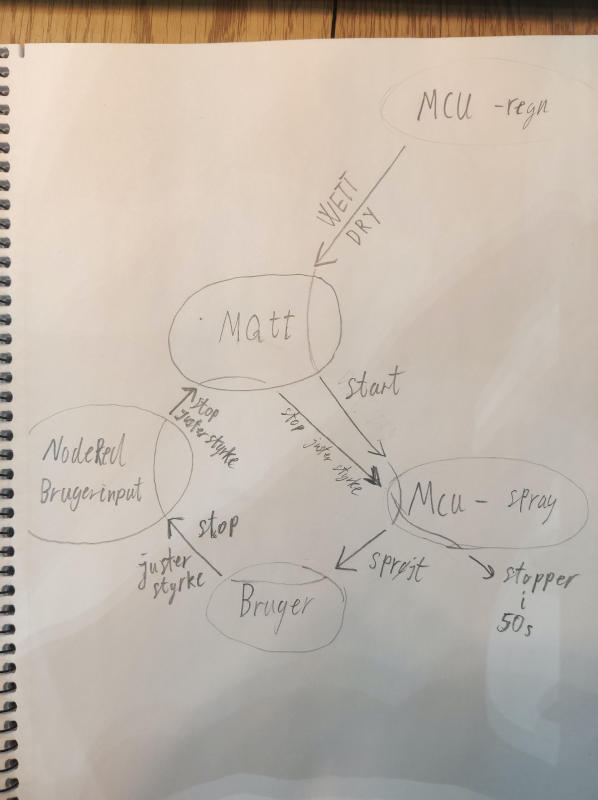 MCU -regn
WETT
DRY
MQtt
start
stop
juster styrke
stop juster styrke
NodeRed
Brugerinput
Mcu - spray
stop
juster
styrke
sprøjt
Bruger
stopper
i
50s